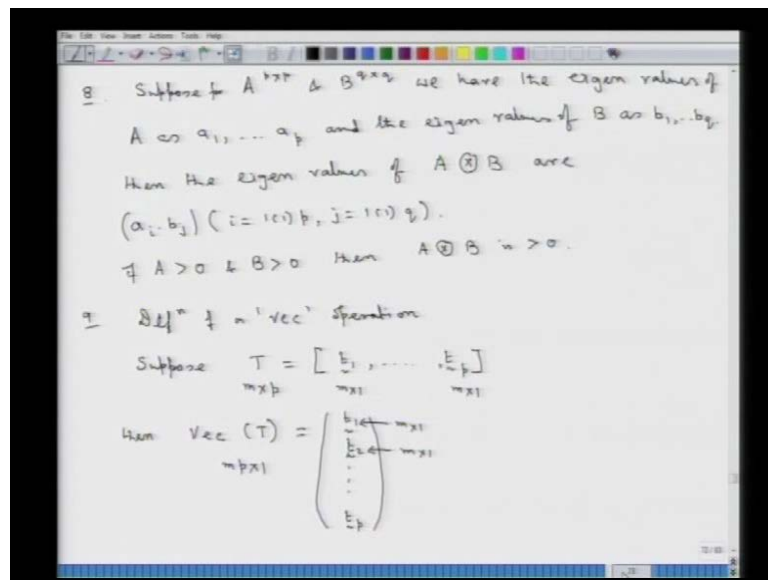 File Edit View Insert Actions Tools Help
8. Suppose for A^{p×p} & B^{q×q} we have the eigen values of
A as a_1, ... a_p and the eigen values of B as b_1, .. b_q
then the eigen values of A ⊗ B are
(a_i . b_j) ( i = 1(1) p, j = 1(1) q ).
If A > 0 & B > 0 then A ⊗ B is > 0.
9. Defⁿ of a 'vec' operation
Suppose T = [ t_1 , ..... , t_p ]
m×p m×1 m×1
then Vec (T) = ( t_1 ← m×1
t_2 ← m×1
mp×1
.
.
.
t_p )